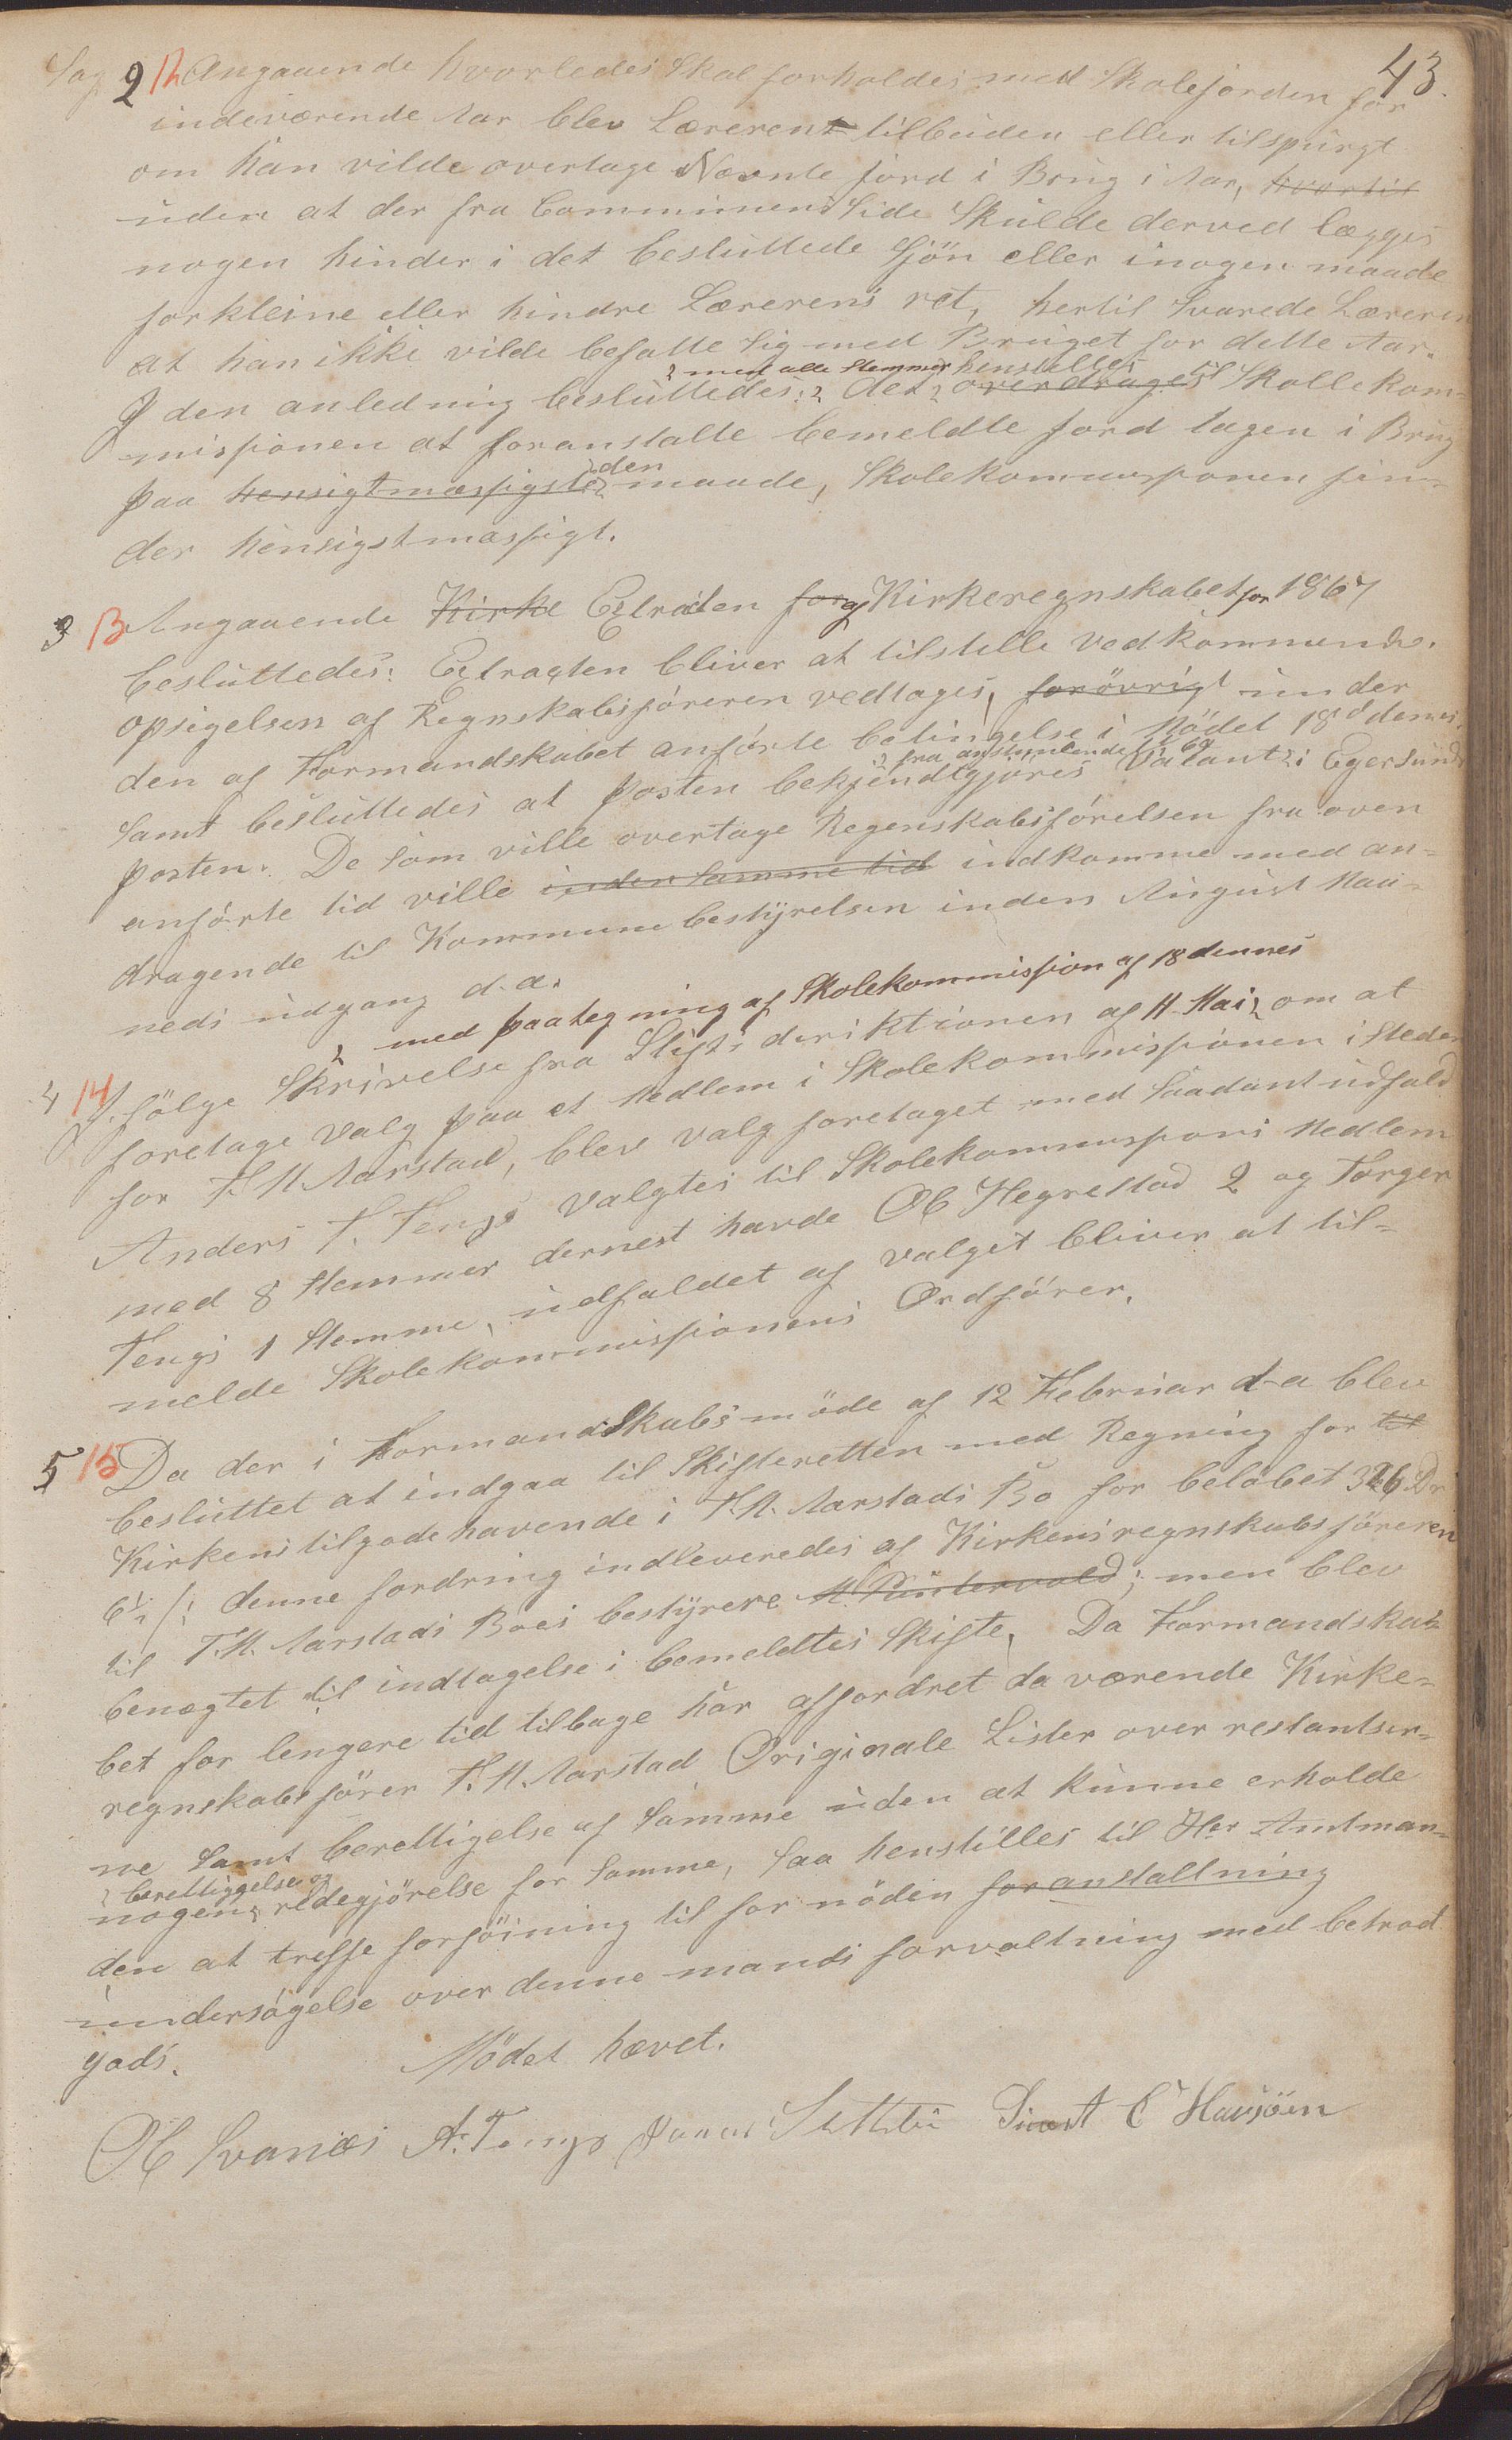 43.
Sag 2 12 Angaaende hvorledes Skal forholdes med Skolejorden for
indeværende Aar blev Læreren tilbuden eller tilspurgt
om han vilde overtage Nævnte jord i Brug i Aar, hvortil
uden at der fra Communens Side Skulde derved lægges
nogen hinder i det besluttede Sjön eller inogen maade
forkleine eller hindre Lærerens ret, hertil Svarede Læreren
at han ikke vilde befatte Sig med Bruget for dette Aar.
med alle Stemmer henstilles
I den anledning besluttedes: det overdrages til Skolekom-
missionen at foranstalte bemeldte jord tagen i Brug
paa hensigtmæssigste den maade, Skolekommissionen fin-
der hensigstmæssigt.
3 13 Angaaende Kirke Extrakten for af Kirkeregnskabet for 1867
besluttedes: Extragten bliver at tilstille vedkommende.
opsigelsen af Regnskabsföreren vedtages, forövrigt under
den af Formandskabet anförte betingelse i Mödet 18d dennes.
fra anstundende
Samt besluttedes at Posten bekjendtgjöres Vakant i Egersunds
posten. De Som ville overtage Regenskabsförelsen fra oven
anförte tid ville inden Samme tid indkomme med an-
dragende til Kommunebestÿrelsen inden August Maa-
neds udgang d.a.
med paategning af Skolekommission af 18 dennes
4 14 Ifölge Skrivelse fra Stiftsdiriktionen af 11 Mai om at
foretage Valg paa et Medlem i Skolekommissionen i Steden
for T. M. Aarstad, blev valg foretaget med Saadant udfald
Anders T. Tengs valgtes til Skolekommissions Medlem
med 8 Stemmer dernest havde Ol Hegrestad 2 og Torger
Tengs 1 Stemme, udfaldet af valget bliver at til-
melde Skolekommissionens Ordförer.
5 15 Da der i Formandskabsmöde af 12 Februar d-a blev
besluttet at indgaa til Skifteretten med Regning for til
Kirkens tilgodehavende i T. M. Aarstads Bo for beløbet 326 Dr
denne fordring indleveredes af Kirkensregnskabsföreren
til T. M. Aarstads Boes bestÿrere M. Puntervold; men blev
benægtet til indtagelse i bemeldtes Skifte. Da Formandska-
bet for lengere tid tilbage har affordret da værende Kirke-
regnskabsförer T. M. Aarstad Originale Lister over restantser-
ne Samt berettigelse af Samme uden at kunne erholde
berettiggelse og
nogen redegjörelse for Samme, Saa henstilles til Her Amtman-
den at treffe forföining til for nöden foranstaltning
undersögelse over denne mands forvaltning med betrod
gods.
Mödet hævet.
Ol Svanæs A. Tengs Jonas Sivert C Havsöen